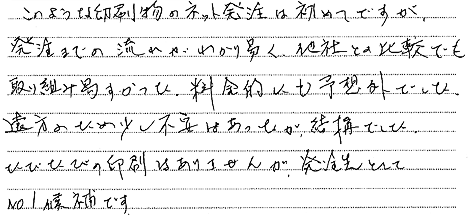 このような印刷物のネット発注は初めてですが、
発注までの流れがわかり易く、他社との比較でも
取り組み易すかった。料金的にも予想外でした。
遠方のため少し不安はあったが、結構でした。
たびたびの印刷はありませんが、発注先として
NO.1候補です